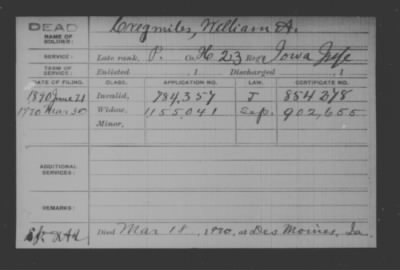 DEAD
NAME OF SOLDIER:
Cregmiles, William A.
SERVICE:
Late rank, P. Co. H, 23 Reg't Iowa Inf
TERM OF SERVICE:
Enlisted , 1 Discharged , 1
DATE OF FILING. CLASS. APPLICATION NO. LAW. CERTIFICATE NO.
1890 June 21 Invalid, 784,357 J 854278
1920 Mar 30 Widow, 1155,041 Sep. 902,655
Minor,
ADDITIONAL SERVICES:
REMARKS:
Died Mar 18, 1920, at Des Moines, Ia.